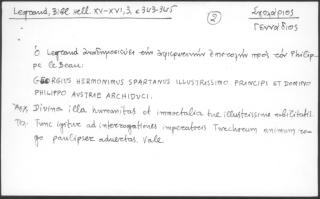 Legrand, Bibl. hell. XV-XVI, 3, σ 343-345
②
Σχολάριος
Γεννάδιος
ὁ Legrand ἀναδημοσιεύει τὴν ἀφιερωτικὴν ἐπιστολὴν πρὸς τὸν Philip-
pe le Beau:
GEORGIUS HERMONIMUS SPARTANUS ILLUSTRISSIMO PRINCIPI ET DOMINO
PHILIPPO AUSTRAE ARCHIDUCI.
Ἀρχ. Divina illa humanitas et immortalia tue illustrissime nobilitatis
Τελ. Tunc igitur ad interrogationes imperatoris Turchorum animum ro-
go paulipser advertas. Vale